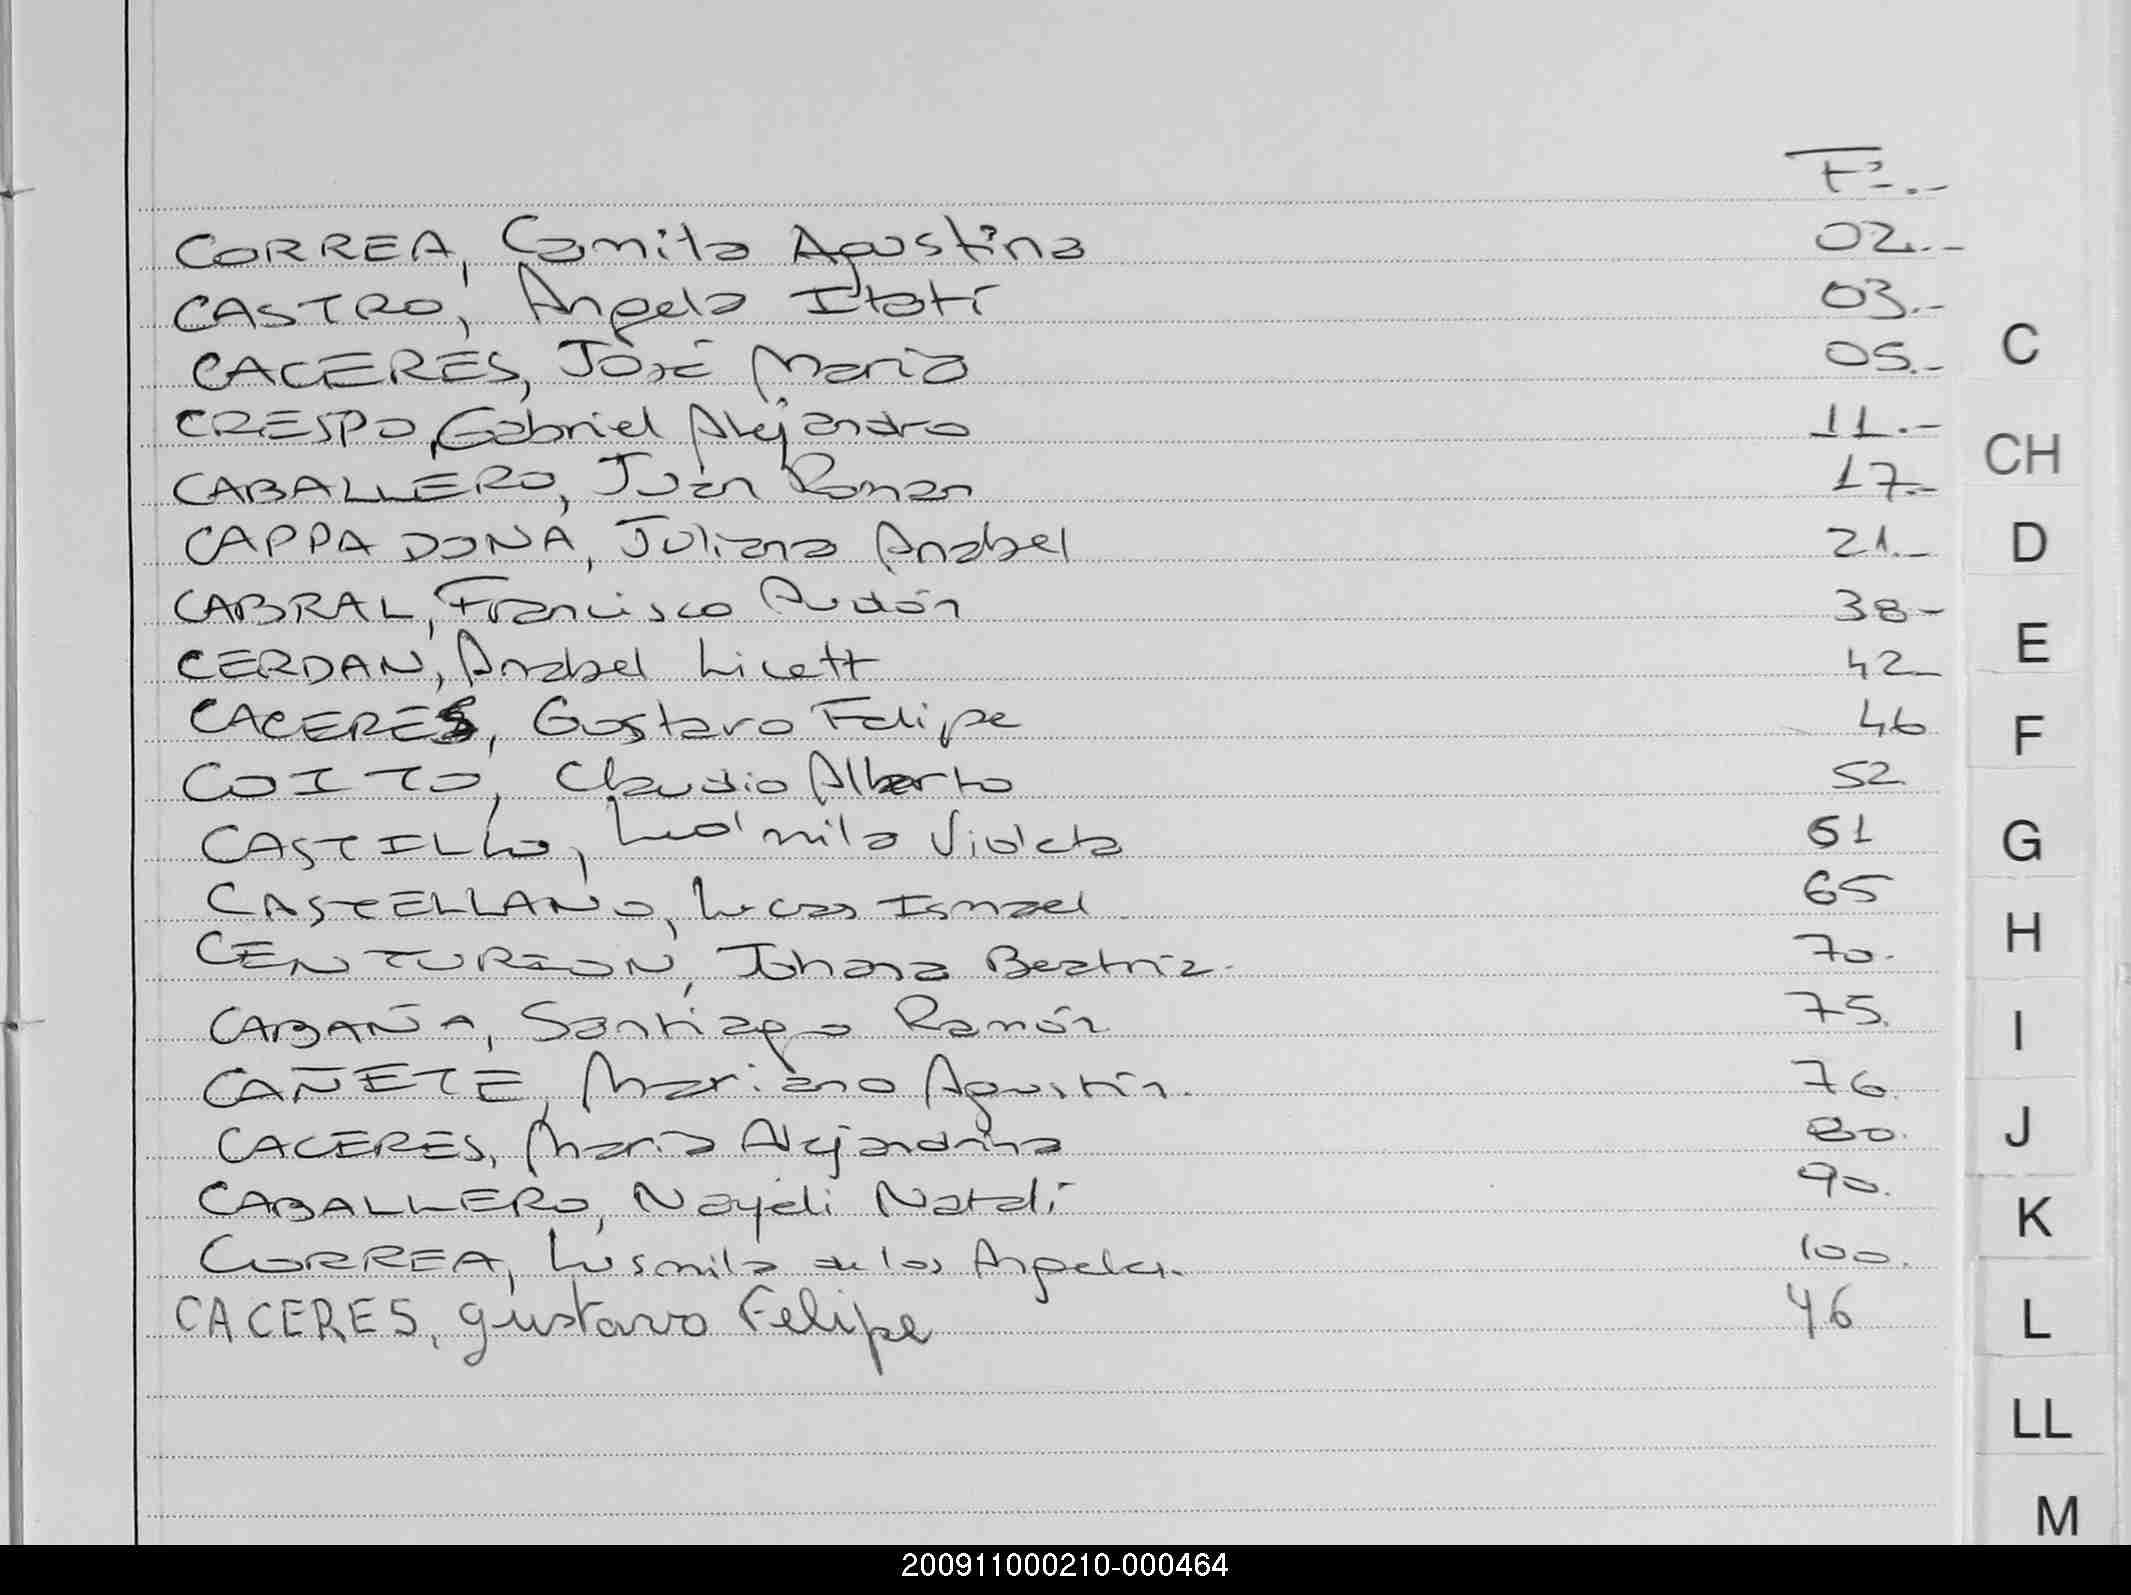 Fº.-
CORREA, Camila Agustina 02.-
CASTRO, Angela Itatí 03.-
CACERES, José María 05.-
CRESPO, Gabriel Alejandro 11.-
CABALLERO, Juan Roman 17.-
CAPPADONA, Juliana Anabel 21.-
CABRAL, Francisco Audón 38-
CERDAN, Anabel Licett 42-
CACERES, Gustavo Felipe 46
COITO, Claudio Alberto 52
CASTILLO, Ludmila Violeta 61
CASTELLANO, Lucas Ismael 65
CENTURION, Johana Beatriz. 70.
CABAÑA, Santiago Ramón 75.
CAÑETE, Mariano Agustín. 76.
CACERES, María Alejandrina 80.
CABALLERO, Nayeli Natalí 90.
CORREA, Lusmila de los Angeles. 100.
CACERES, Gustavo Felipe 46
C
CH
D
E
F
G
H
I
J
K
L
LL
M
200911000210-000464